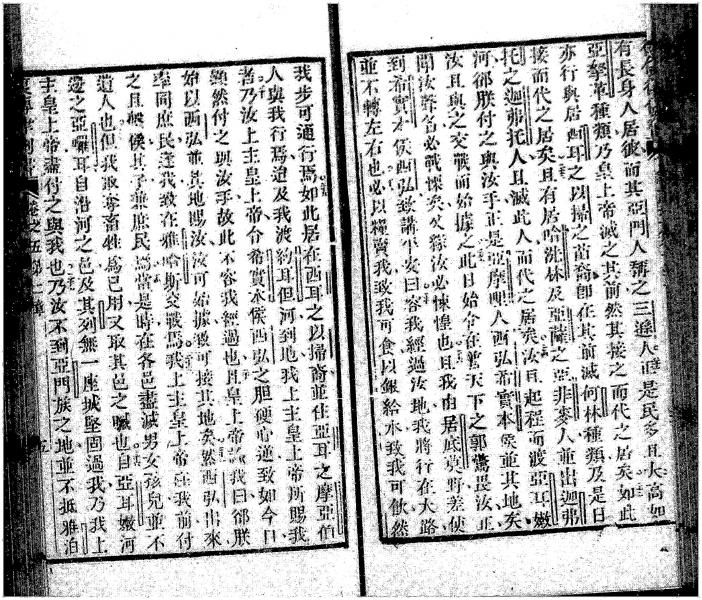 有長身人居彼而其亞門人稱之三遜人正是民多且大高如
亞拏革種類乃皇上帝滅之其前然其接之而代之居矣如此
亦行與居西耳之以掃之苗裔即在其前滅何林種類乃是日
接而代之居矣且有居哈洗林及亞薩之亞非麥人並出迦弗
托之迦弗托人且滅此人而代之居矣汝且起程而渡亞耳嫩
河卻朕付之與汝手正是亞摩哩人西弘希實本侯並其地矣
汝且與之交戰而始據之此日始令在普天下之郭驚畏汝正
聞汝聲名必戰慄矣又為汝必悚惶也且我由居底莫野差使
到希實本侯西弘致講平安曰容我經過汝地我將行在大路
並不轉左右也必以糧賣我致我可食以銀給水致我可飲然
我步可通行焉如此居在西耳之以掃裔並住亞耳之摩亞伯
人與我行焉迨及我渡約耳但河到地我上主皇上帝所賜我
者乃汝上主皇上帝令希實本侯西弘之胆硬心逆致如今日
顯然付之與汝手故此不容我經過也且皇上帝諭我曰卻朕
始以西弘並其地賜汝汝可始據致可接其地矣然西弘出來
率同庶民逢我致在雅哈斯交戰焉我上主皇上帝在我前付
之且戰侯其子並庶民焉當是時在各邑盡滅男女孩兒並不
遺人也但我取奪畜牲為己用又取其邑之贓也自亞耳嫩河
邊之亞囉耳自沿河之邑及其列無一座城堅固過我乃我上
主皇上帝盡付之與我也乃汝不到亞門族之地並不抵雅泊
卷之五第二章 五